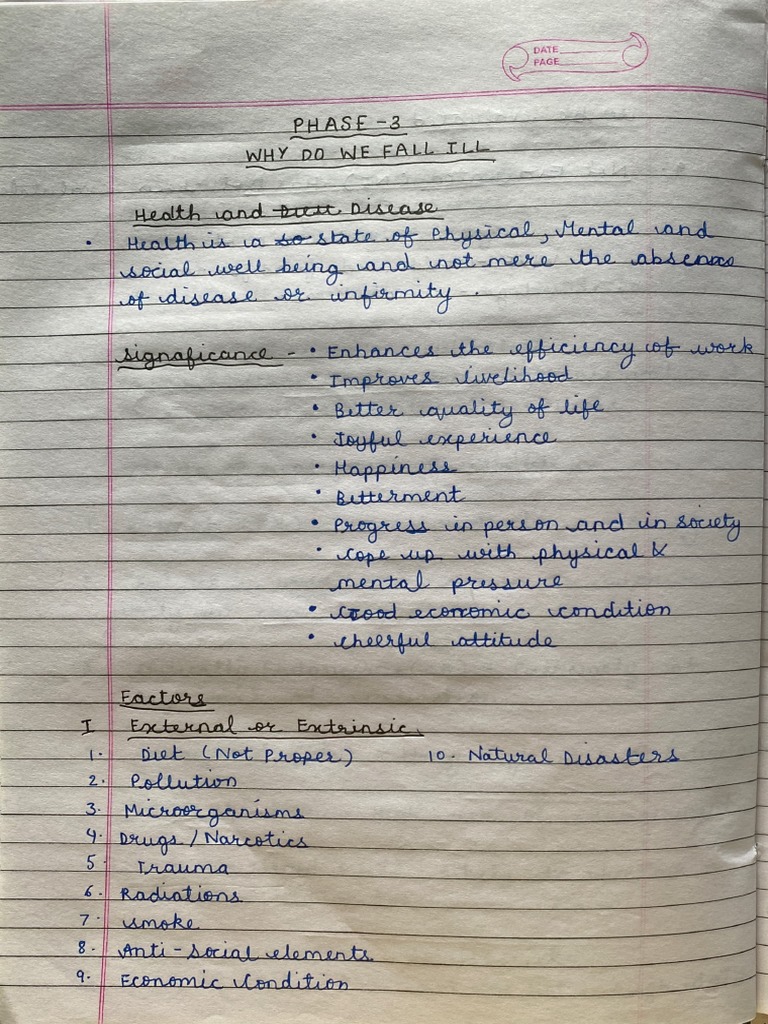 DATE
PAGE
PHASE - 3
WHY DO WE FALL ILL
Health and Disease
• Health is a so state of Physical, Mental and
social well being and not mere the absence
of disease or infirmity.
signaficance - • Enhances the efficiency of work
• Improves livelihood
• Better quality of life
• Joyful experience
• Happiness
• Bitterment
• Progress in person and in society
• cope up with physical &
mental pressure
• Good economic condition
• cheerful attitude
Factors
I External or Extrinsic
1. Diet (Not Proper) 10. Natural Disasters
2. Pollution
3. Microorganisms
4. Drugs / Narcotics
5. Trauma
6. Radiations
7. smoke
8. Anti-social elements
9. Economic Condition